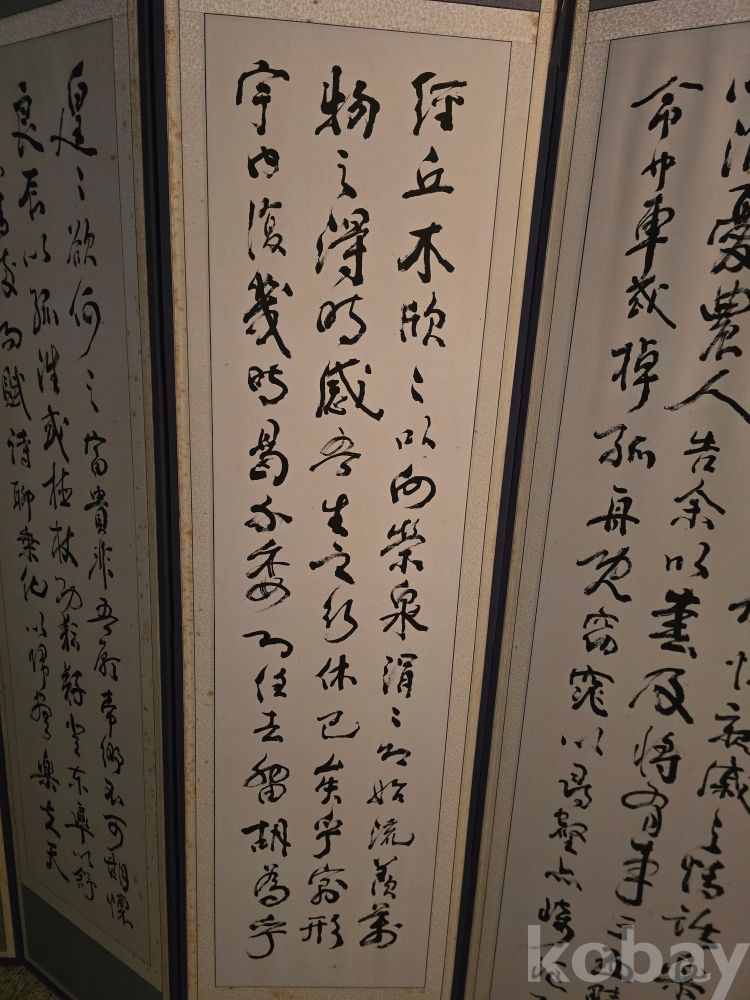 悅親戚之情話樂
以消憂農人告余以春及將有事于西疇
命巾車或掉孤舟既窈窕以尋壑亦崎
經丘木欣々以向榮泉涓々而始流羨萬
物之得時感吾生之行休已矣乎寓形
宇內復幾時曷不委心任去留胡為乎
遑々欲何之富貴非吾願帝鄉不可期懷
良辰以孤往或植杖而耘耔登東皋以舒
而賦詩聊乘化以歸盡樂夫天
kobay